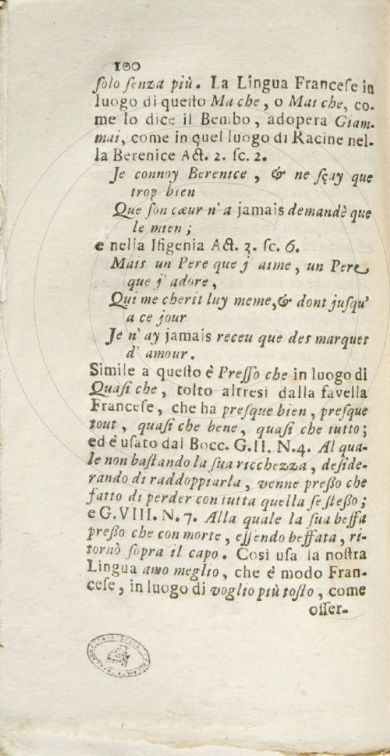 100
solo senza più. La Lingua Francese in
luogo di questo Ma che, o Mai che, co-
me lo dice il Bembo, adopera Giam-
mai, come in quel luogo di Racine nel-
la Berenice Act. 2. sc. 2.
Je connoy Berenice, & ne sçay que
trop bien
Que son cœur n'a jamais demandè que
le mien;
e nella Ifigenia Act. 3. sc. 6.
Mais un Pere que j'aime, un Pere
que j'adore,
Qui me cherit luy meme, & dont jusqu'
a ce jour
Je n'ay jamais receu que des marques
d'amour.
Simile a questo è Presso che in luogo di
Quasi che, tolto altresì dalla favella
Francese, che ha presque bien, presque
tout, quasi che bene, quasi che tutto;
ed è usato dal Bocc. G.II. N.4. Al qua-
le non bastando la sua ricchezza, deside-
rando di raddoppiarla, venne presso che
fatto di perder con tutta quella se stesso;
e G.VIII. N.7. Alla quale la sua beffa
presso che con morte, essendo beffata, ri-
tornò sopra il capo. Così usa la nostra
Lingua amo meglio, che è modo Fran-
cese, in luogo di voglio più tosto, come
osser-